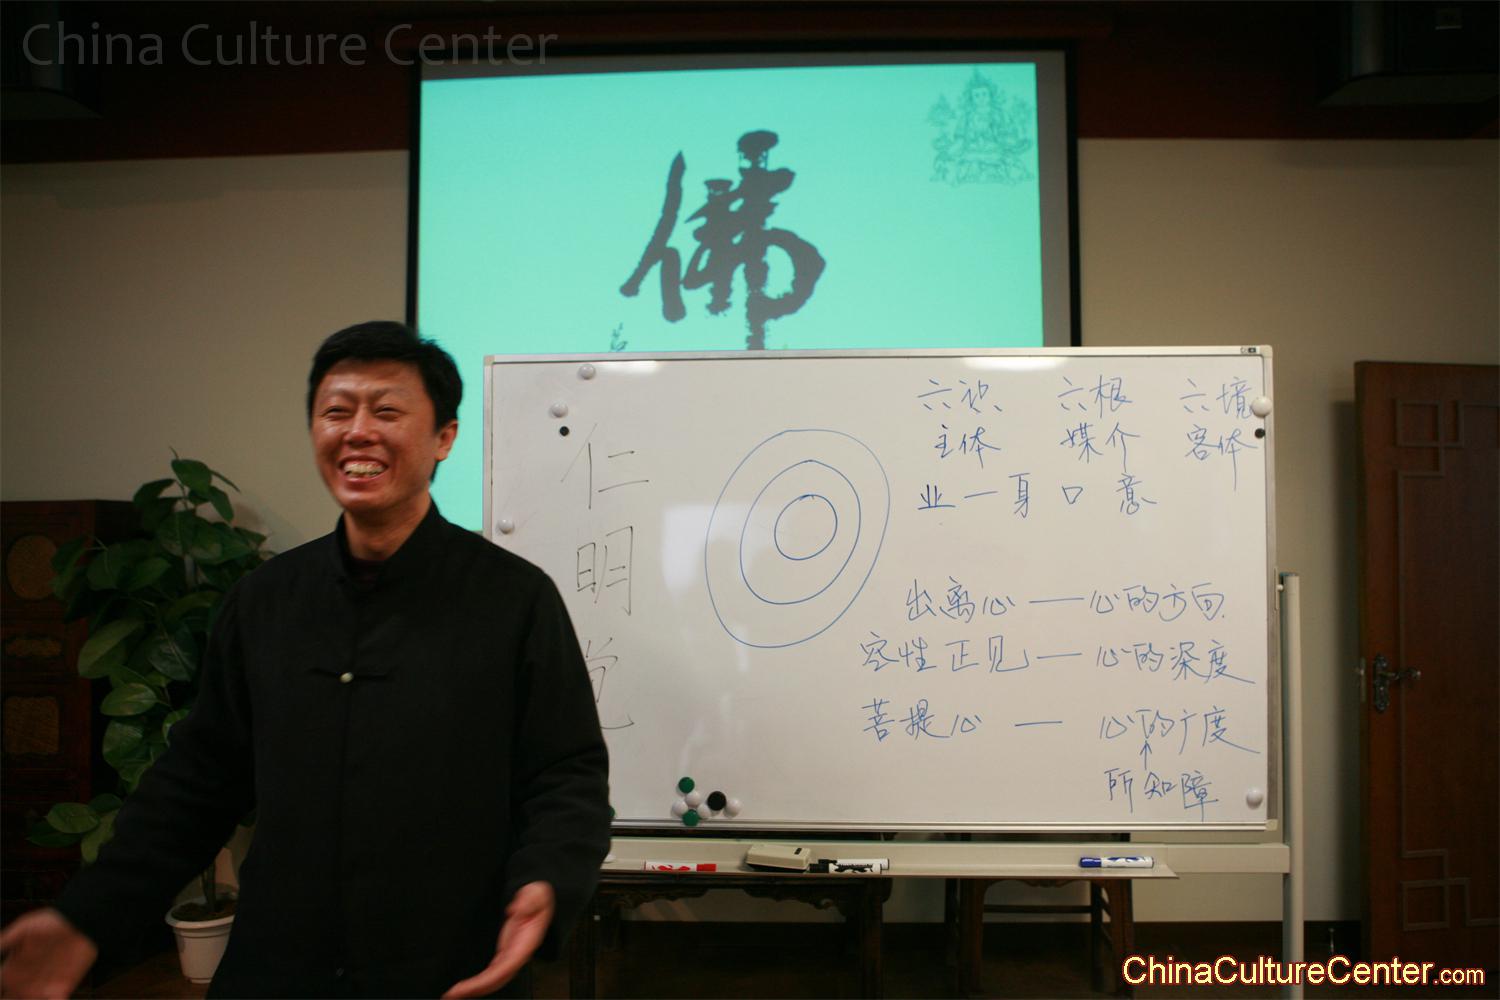 China Culture Center
佛
六识 六根 六境
主体 媒介 客体
业一身口意
仁明觉
出离心——心的方向
空性正见——心的深度
菩提心——心的广度
↑
所知障
ChinaCultureCenter.com